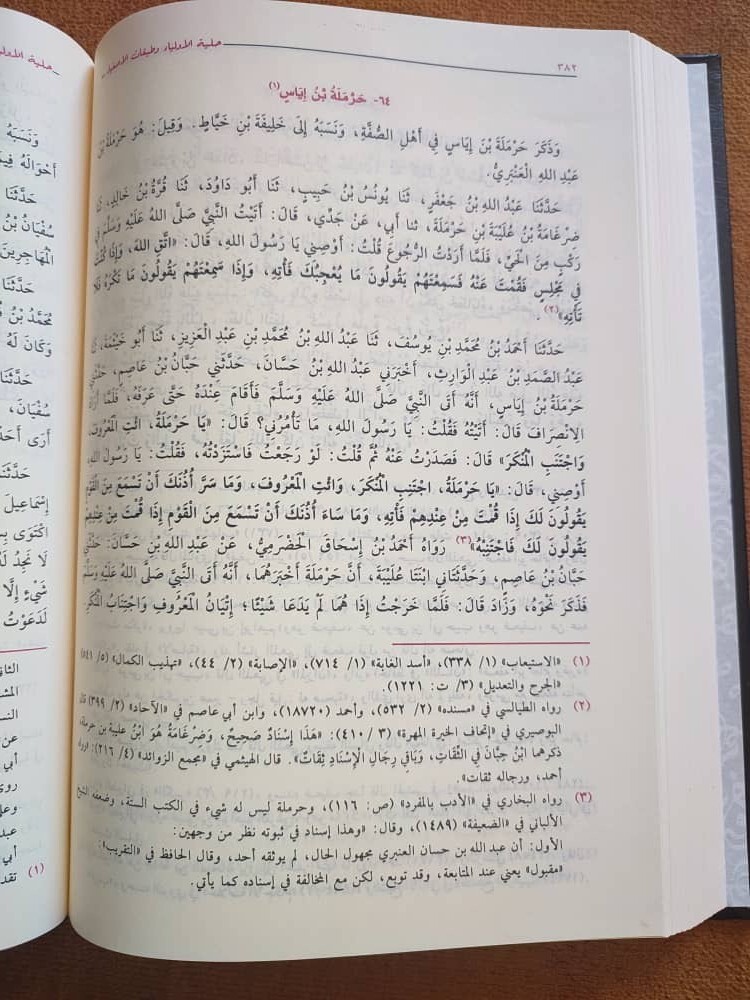 حلية الأولياء وطبقات الأصفياء
٣٨٢
٦٤- حَرْمَلَةُ بْنُ إِيَاسٍ(١)
وَذَكَرَ حَرْمَلَةَ بْنَ إِيَاسٍ فِي أَهْلِ الصُّفَّةِ، وَنَسَبَهُ إِلَى خَلِيفَةَ بْنِ خَيَّاطٍ. وَقِيلَ: هُوَ حَرْمَلَةُ بْنُ
عَبْدِ اللهِ الْعَنْبَرِيُّ.
حَدَّثَنَا عَبْدُ اللهِ بْنُ جَعْفَرٍ، ثَنَا يُونُسُ بْنُ حَبِيبٍ، ثَنَا أَبُو دَاوُدَ، ثَنَا قُرَّةُ بْنُ خَالِدٍ، ثَنَا
ضِرْغَامَةُ بْنُ عُلَيْبَةَ بْنِ حَرْمَلَةَ، ثنا أَبِي، عَنْ جَدِّي، قَالَ: أَتَيْتُ النَّبِيَّ صَلَّى اللهُ عَلَيْهِ وَسَلَّمَ فِي
رَكْبٍ مِنَ الْحَيِّ، فَلَمَّا أَرَدْتُ الرُّجُوعَ قُلْتُ: أَوْصِنِي يَا رَسُولَ اللهِ، قَالَ: «اتَّقِ اللهَ، وَإِذَا كُنْتَ
فِي مَجْلِسٍ فَقُمْتَ عَنْهُ فَسَمِعْتَهُمْ يَقُولُونَ مَا يُعْجِبُكَ فَأْتِهِ، وَإِذَا سَمِعْتَهُمْ يَقُولُونَ مَا تَكْرَهُ فَلَا
تَأْتِهِ»(٢).
حَدَّثَنَا أَحْمَدُ بْنُ مُحَمَّدِ بْنِ يُوسُفَ، ثَنَا عَبْدُ اللهِ بْنُ مُحَمَّدِ بْنِ عَبْدِ الْعَزِيزِ، ثَنَا أَبُو خَيْثَمَةَ، ثَنَا
عَبْدُ الصَّمَدِ بْنُ عَبْدِ الْوَارِثِ، أَخْبَرَنِي عَبْدُ اللهِ بْنُ حَسَّانَ، حَدَّثَنِي حَبَّانُ بْنُ عَاصِمٍ، حَدَّثَنِي
حَرْمَلَةُ بْنُ إِيَاسٍ، أَنَّهُ أَتَى النَّبِيَّ صَلَّى اللهُ عَلَيْهِ وَسَلَّمَ فَأَقَامَ عِنْدَهُ حَتَّى عَرَفَهُ، فَلَمَّا أَرَادَ
الِانْصِرَافَ قَالَ: أَتَيْتُهُ فَقُلْتُ: يَا رَسُولَ اللهِ، مَا تَأْمُرُنِي؟ قَالَ: «يَا حَرْمَلَةُ، ائْتِ الْمَعْرُوفَ،
وَاجْتَنِبِ الْمُنْكَرَ» قَالَ: فَصَدَرْتُ عَنْهُ ثُمَّ قُلْتُ: لَوْ رَجَعْتُ فَاسْتَزَدْتُهُ، فَقُلْتُ: يَا رَسُولَ اللهِ،
أَوْصِنِي، قَالَ: «يَا حَرْمَلَةُ، اجْتَنِبِ الْمُنْكَرَ، وَائْتِ الْمَعْرُوفَ، وَمَا سَرَّ أُذُنَكَ أَنْ تَسْمَعَ مِنَ الْقَوْمِ
يَقُولُونَ لَكَ إِذَا قُمْتَ مِنْ عِنْدِهِمْ فَأْتِهِ، وَمَا سَاءَ أُذُنَكَ أَنْ تَسْمَعَ مِنَ الْقَوْمِ إِذَا قُمْتَ مِنْ عِنْدِهِمْ
يَقُولُونَ لَكَ فَاجْتَنِبْهُ»(٣) رَوَاهُ أَحْمَدُ بْنُ إِسْحَاقَ الْحَضْرَمِيُّ، عَنْ عَبْدِ اللهِ بْنِ حَسَّانَ: حَدَّثَنِي
حَبَّانُ بْنُ عَاصِمٍ، وَحَدَّثَتَانِي ابْنَتَا عُلَيْبَةَ، أَنَّ حَرْمَلَةَ أَخْبَرَهُمَا، أَنَّهُ أَتَى النَّبِيَّ صَلَّى اللهُ عَلَيْهِ وَسَلَّمَ
فَذَكَرَ نَحْوَهُ، وَزَادَ قَالَ: فَلَمَّا خَرَجْتُ إِذَا هُمَا لَمْ يَدَعَا شَيْئًا؛ إِتْيَانُ الْمَعْرُوفِ وَاجْتِنَابُ الْمُنْكَرِ
(١) «الاستيعاب» (١/ ٣٣٨)، «أسد الغابة» (١/ ٧١٤)، «الإصابة» (٢/ ٤٤)، «تهذيب الكمال» (٥/ ٥٤١)
«الجرح والتعديل» (٣/ ت: ١٢٢١).
(٢) رواه الطيالسي في «مسنده» (٢/ ٥٣٢)، وأحمد (١٨٧٢٠)، وابن أبي عاصم في «الآحاد» (٢/ ٣٩٩) قال
البوصيري في «إتحاف الخيرة المهرة» (٣/ ٤١٠): «هَذَا إِسْنَادٌ صَحِيحٌ، وَضِرْغَامَةُ هُوَ ابْنُ عليبة بن حرملة،
ذكرهما ابْنُ حِبَّانَ فِي الثِّقَاتِ، وَبَاقِي رِجَالِ الْإِسْنَادِ ثِقَاتٌ». قال الهيثمي في «مجمع الزوائد» (٤/ ٢١٦): «رواه
أحمد، ورجاله ثقات».
(٣) رواه البخاري في «الأدب بالمفرد» (ص: ١١٦)، وحرملة ليس له شيء في الكتب الستة، وضعفه الشيخ
الألباني في «الضعيفة» (١٤٨٩)، وقال: «وهذا إسناد في ثبوته نظر من وجهين:
الأول: أن عبد الله بن حسان العنبري مجهول الحال، لم يوثقه أحد، وقال الحافظ في «التقريب»:
«مقبول» يعني عند المتابعة، وقد توبع، لكن مع المخالفة في إسناده كما يأتي.
وَنَسَبَهُ
أَحْوَالِهُ
حَدَّثَنَا
سُفْيَانُ بْنُ
الْمُهَاجِرِينَ
حَدَّثَنَا
مُحَمَّدُ بْنُ
وَكَانَ لَهُ
حَدَّثَنَا
سُفْيَانَ،
أَرَى أَحَدً
حَدَّثَنَا
إِسْمَاعِيلَ
اكْتَوَى
لَا نَجِدُ
شَيْءٍ إِلَّا
لَدَعَوْتُ
عن
أبي
روى
عبد
أبي
(١) تقد